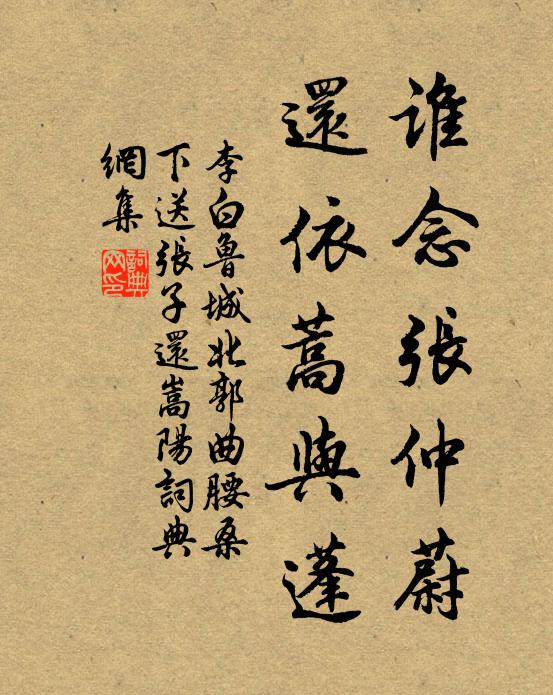 谁念張仲蔚
還依蒿與蓬
李白魯城北郭曲腰桑
下送張子還嵩陽詞典
網集
詞典
网印